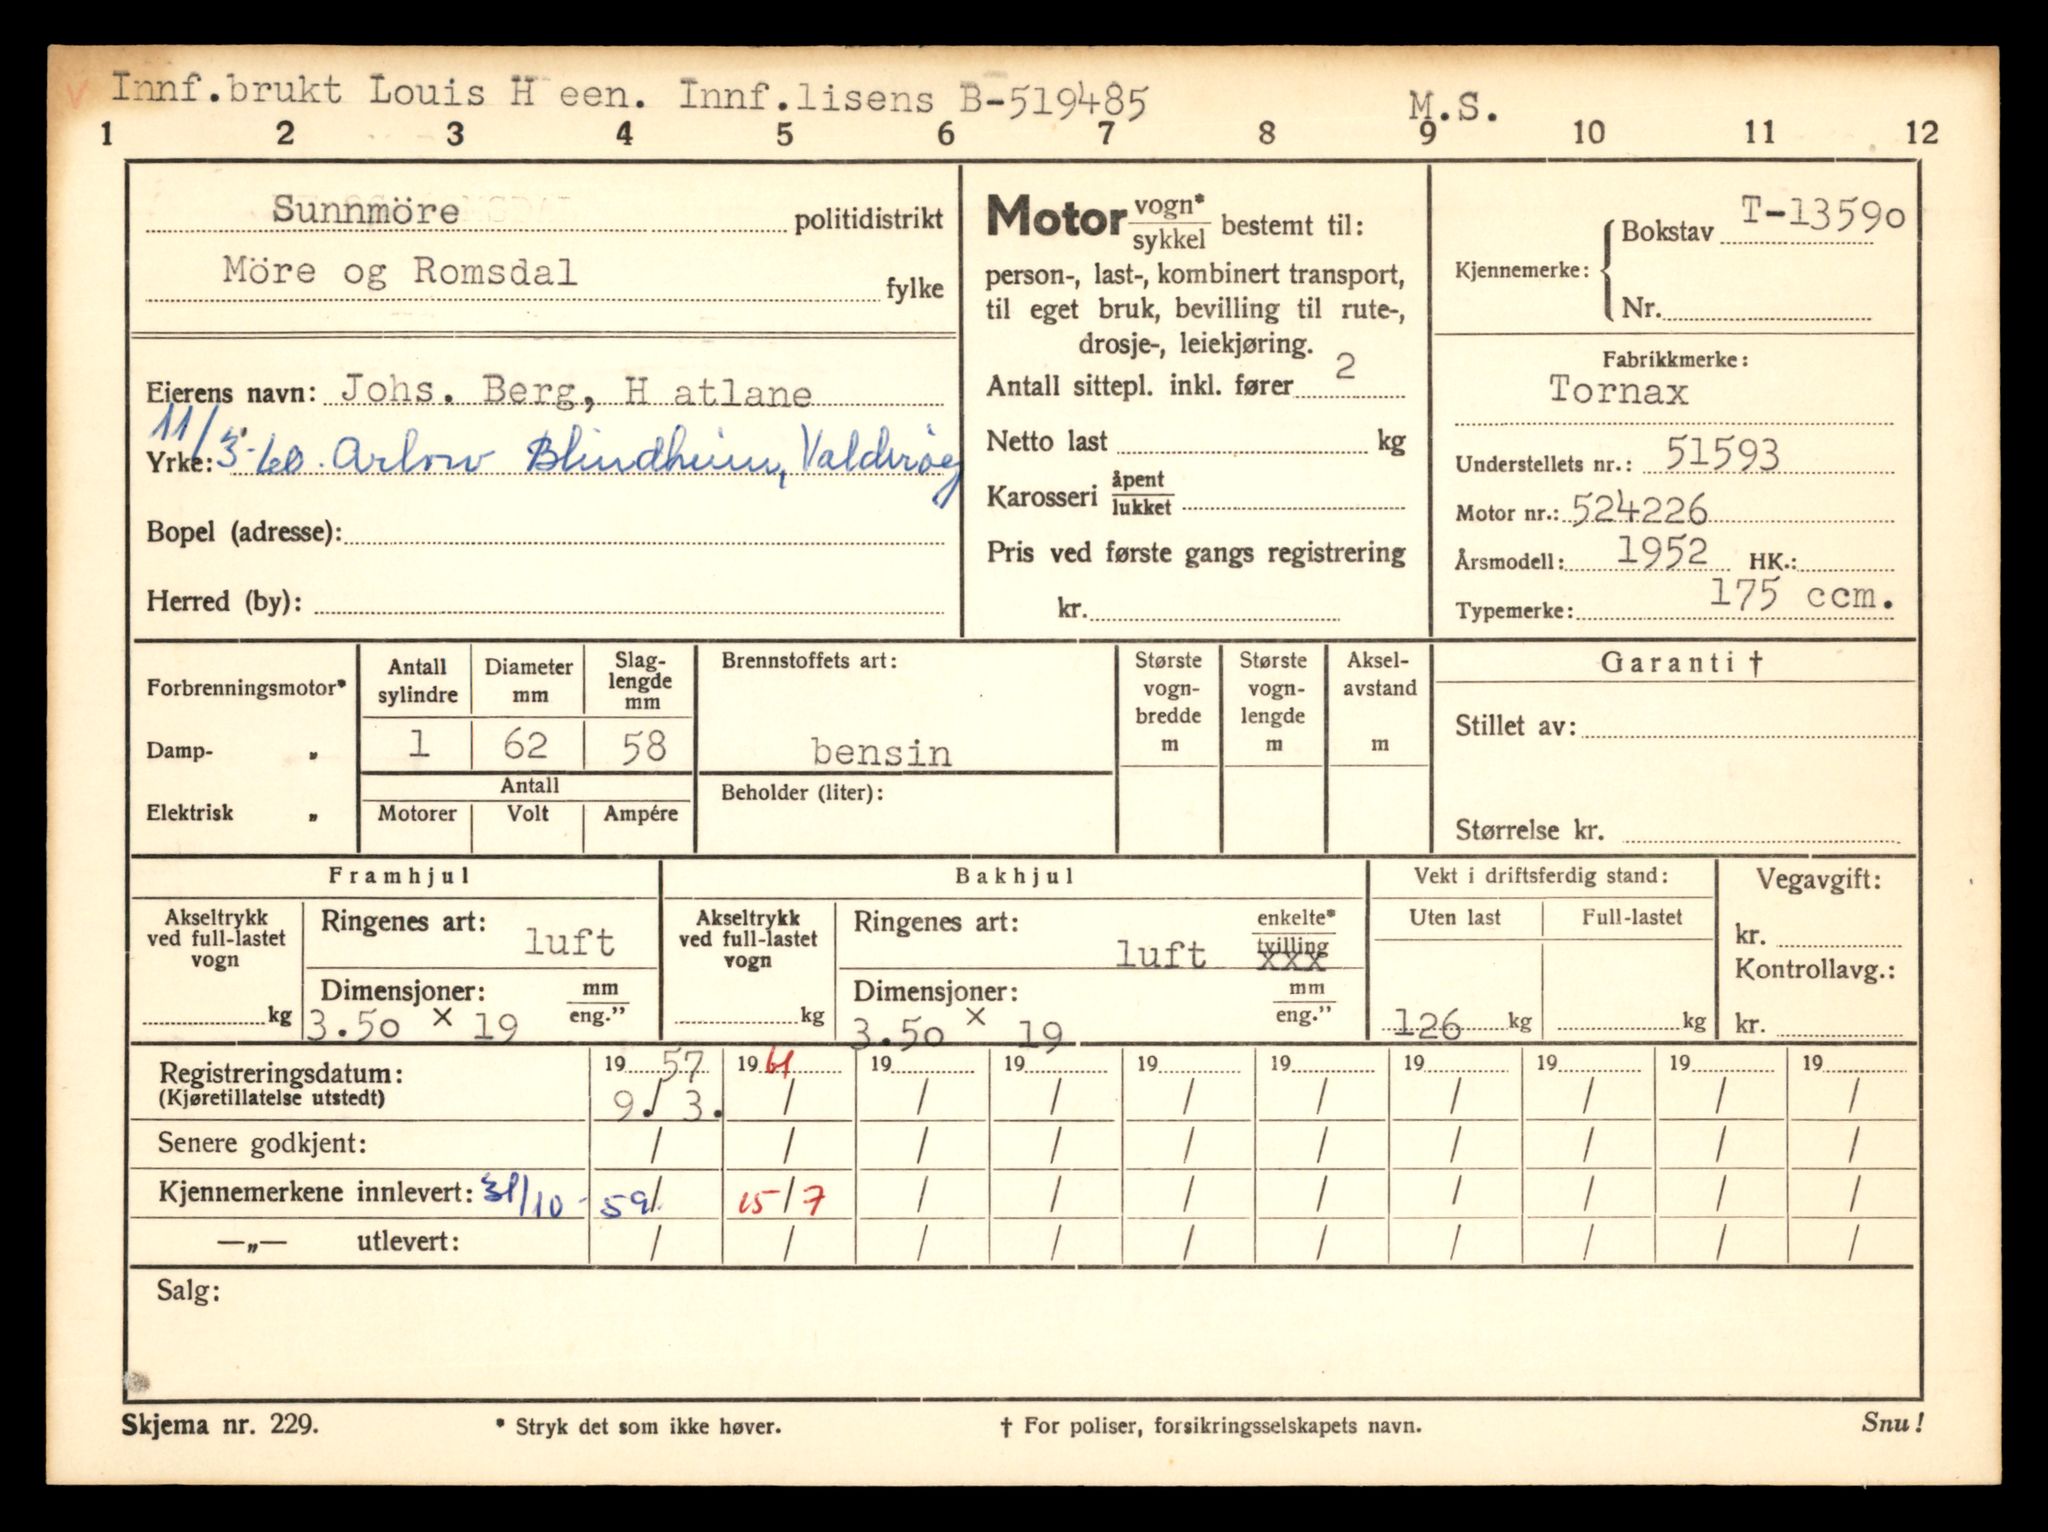 V Innf.brukt Louis H een. Innf.lisens B-519485 M.S.
1 2 3 4 5 6 7 8 9 10 11 12
Sunnmöre politidistrikt
Möre og Romsdal fylke
Eierens navn: Johs. Berg, H atlane
11/3-60. Arlow Blindheim, Valderøy
Yrke:
Bopel (adresse):
Herred (by):
Motor vogn*/sykkel bestemt til:
person-, last-, kombinert transport,
til eget bruk, bevilling til rute-,
drosje-, leiekjøring.
Antall sittepl. inkl. fører 2
Netto last kg
Karosseri åpent/lukket
Pris ved første gangs registrering
kr.
Kjennemerke: Bokstav T-13590
Nr.
Fabrikkmerke:
Tornax
Understellets nr.: 51593
Motor nr.: 524226
Årsmodell: 1952 HK.:
Typemerke: 175 ccm.
Forbrenningsmotor*
Damp- „
Elektrisk „
Antall sylindre
Diameter mm
Slag-
lengde
mm
1 62 58
Antall
Motorer Volt Ampére
Brennstoffets art:
bensin
Beholder (liter):
Største
vogn-
bredde
m
Største
vogn-
lengde
m
Aksel-
avstand
m
Garanti †
Stillet av:
Størrelse kr.
Framhjul
Akseltrykk
ved full-lastet
vogn
kg
Ringenes art:
luft
Dimensjoner: mm/eng."
3.50 x 19
Bakhjul
Akseltrykk
ved full-lastet
vogn
kg
Ringenes art: enkelte*/tvilling
luft xxx
Dimensjoner: mm/eng."
3.50 x 19
Vekt i driftsferdig stand:
Uten last Full-lastet
126 kg kg
Vegavgift:
kr.
Kontrollavg.:
kr.
Registreringsdatum: 19 57 19 61 19 19 19 19 19 19 19 19
(Kjøretillatelse utstedt) 9./ 3. / / / / / / / / /
Senere godkjent: / / / / / / / / / /
Kjennemerkene innlevert: 31/10 - 59 / 15/7 / / / / / / / /
—„— utlevert: / / / / / / / / / /
Salg:
Skjema nr. 229. * Stryk det som ikke høver. † For poliser, forsikringsselskapets navn. Snu!